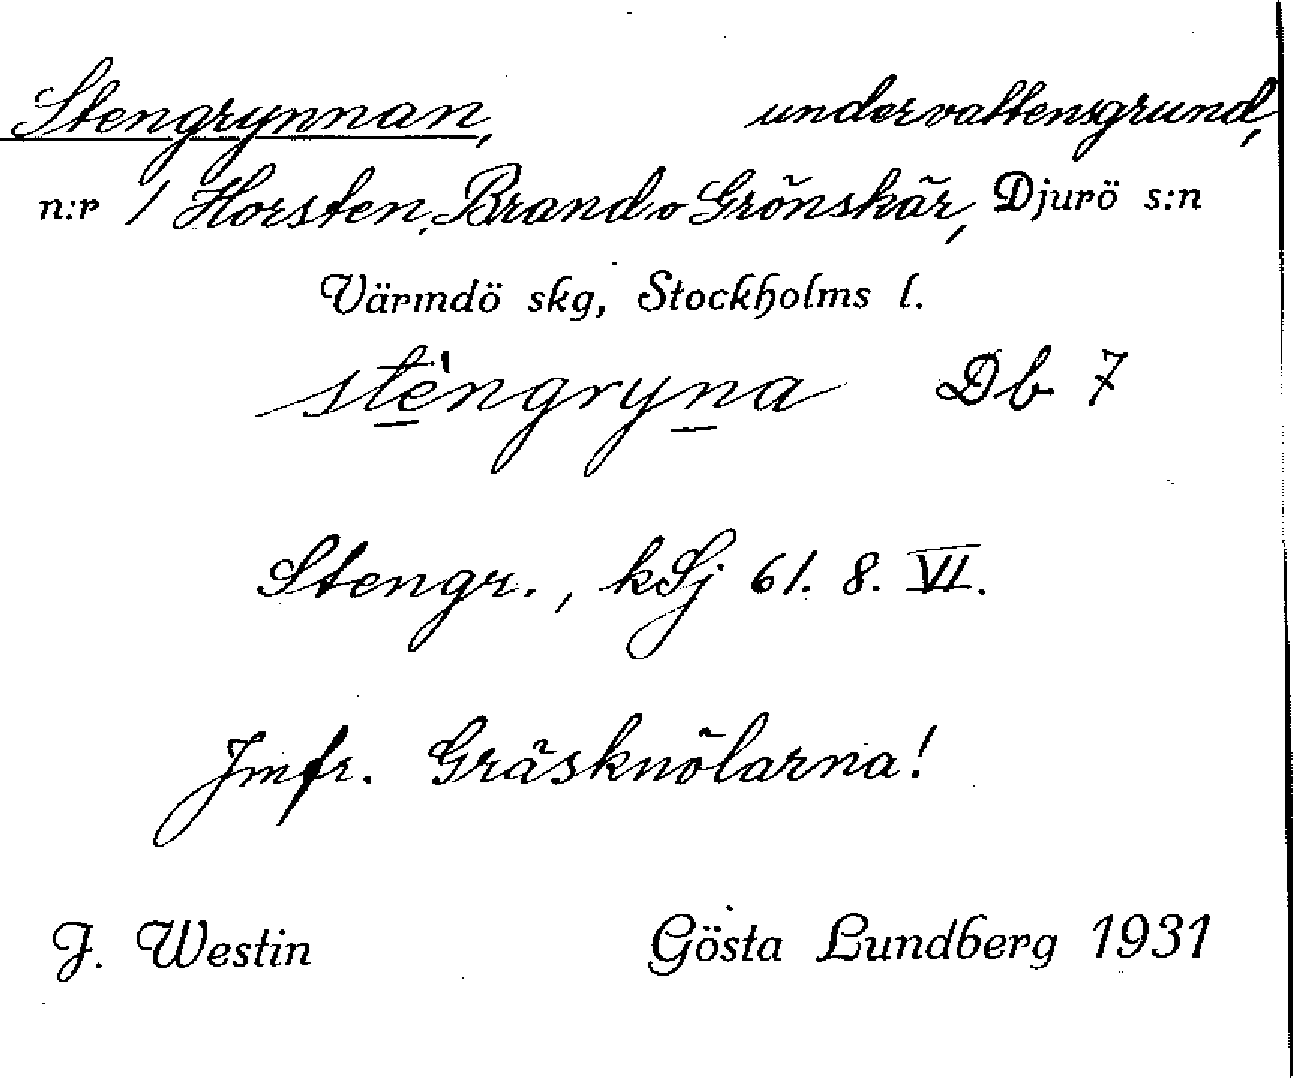 Stengrynnan, undervattensgrund,
n:r 1 Horsten, Brand o Grönskär, Djurö s:n
Värmdö skg, Stockholms l.
stèngryna Db 7
Stengr., kSj 61. 8. VI.
Jmfr. Gräsknölarna!
J. Westin Gösta Lundberg 1931